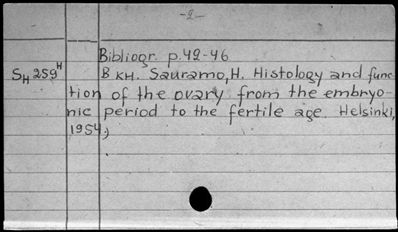 -2-
Bibliogr. p.42-46
SH 259H В кн. Sauramo, H. Histology and func
tion of the ovary from the embryo-
nic period to the fertile age. Helsinki,
1954.)